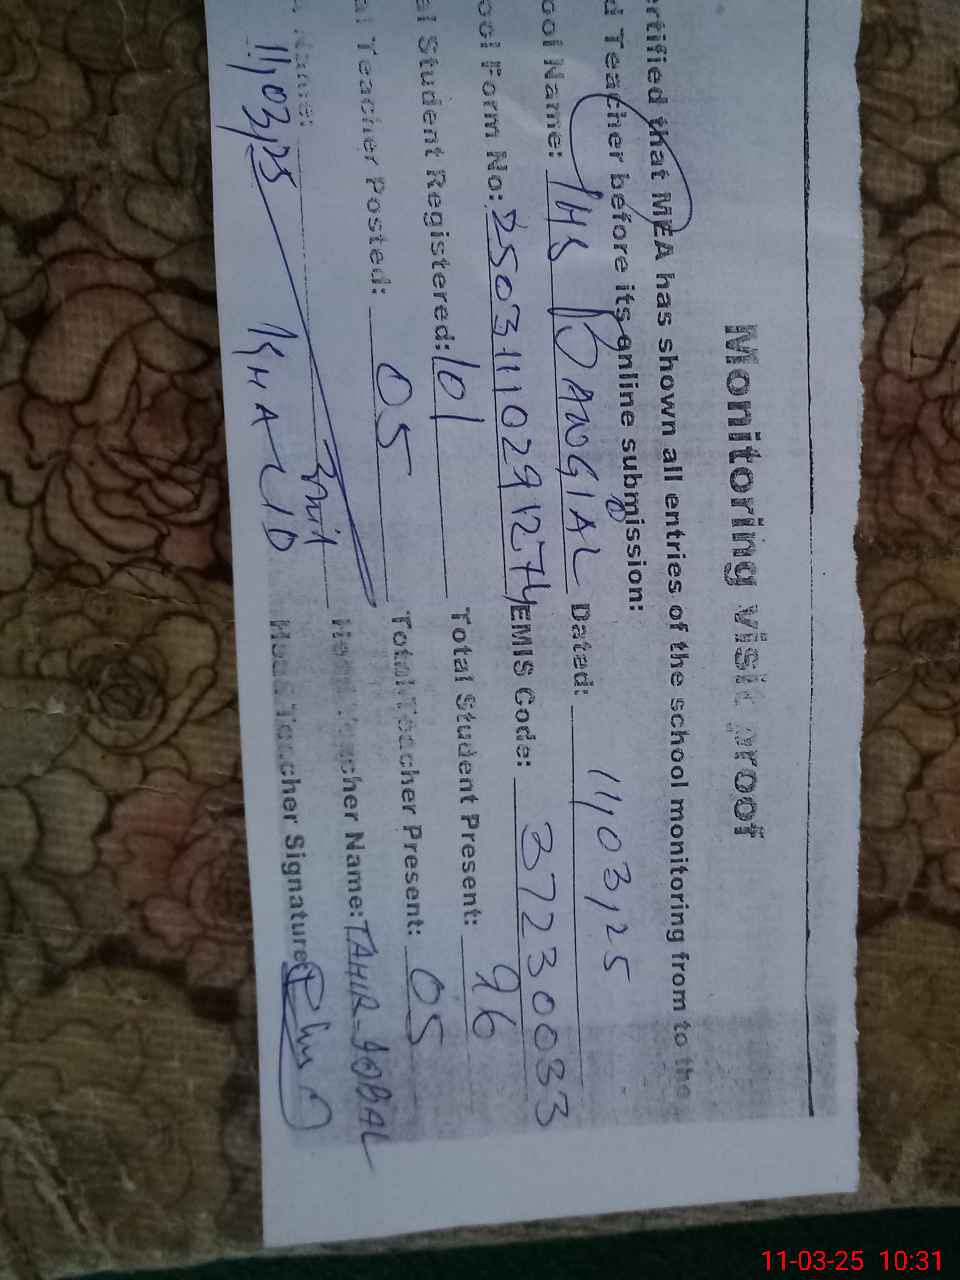 Monitoring visit proof
ertified that MEA has shown all entries of the school monitoring from to the
d Teacher before its online submission:
ool Name: HS DANGIAL Dated: 11,03,25
ool Form No: EMIS Code: 37230033
al Student Registered: 101 Total Student Present: 96
al Teacher Posted: 05 Total Teacher Present: 05
Name: Head Teacher Name: TAHIR-IQBAL
11,03,25 KHALID Head Teacher Signature
11-03-25 10:31